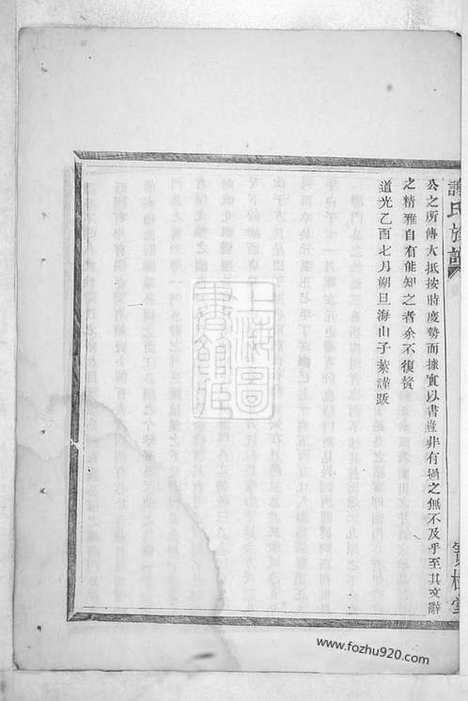 謝氏族譜
寳樹堂
公之所傳大抵按時度勢而據實以書並非有過之無不及乎至其文辭
之精雅自有能知之者余不復贅
道光乙酉七月朔旦海山子葉謹跋
上海圖書館藏
www.fozhu920.com